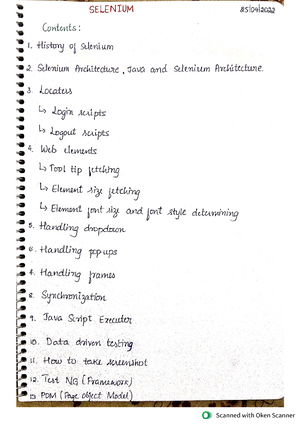 SELENIUM
25/04/2022
Contents:
1. History of Selenium
2. Selenium Architecture, Java and Selenium Architecture.
3. Locaters
↳ Login scripts
↳ Logout scripts
4. Web elements
↳ Tool tip fetching
↳ Element size fetching
↳ Element font size and font style determining
5. Handling dropdown
6. Handling popups
7. Handling frames
8. Synchronization
9. Java Script Executor
10. Data driven testing
11. How to take screenshot
12. Test NG (Framework)
13 POM (Page Object Model)
Scanned with Oken Scanner